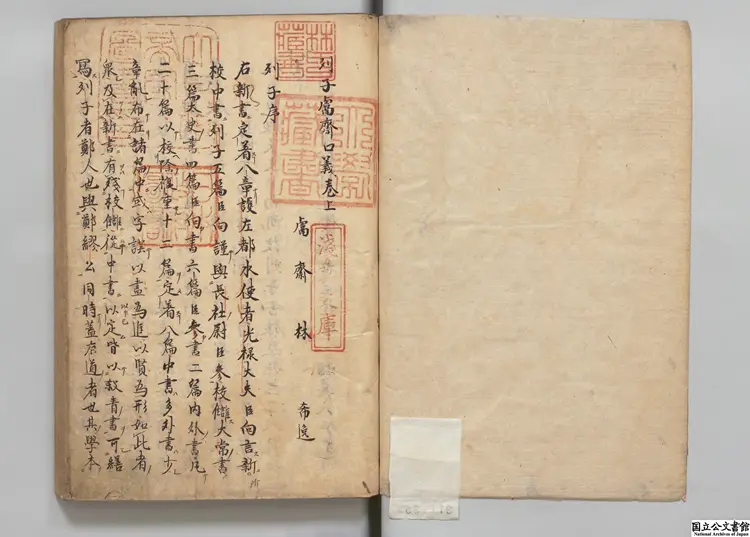 列子鬳齋口義卷上
鬳齋林希逸
列子序
右新書定着八章護左都水使者光祿大夫臣向言新
校中書列子五篇臣向謹與長社尉臣參校讎太常書
三篇太史書四篇臣向書六篇臣參書二篇内外書凡
二十篇以校除複重十二篇定着八篇中書多外書少
章亂布在諸篇中或字誤以盡為進以賢為形如此者
衆及在新書有殘校讎從中書以定皆以殺青書可繕
寫列子者鄭人也與鄭繆公同時蓋有道者也其學本
林氏藏書
淺草文庫
国立公文書館
National Archives of Japan